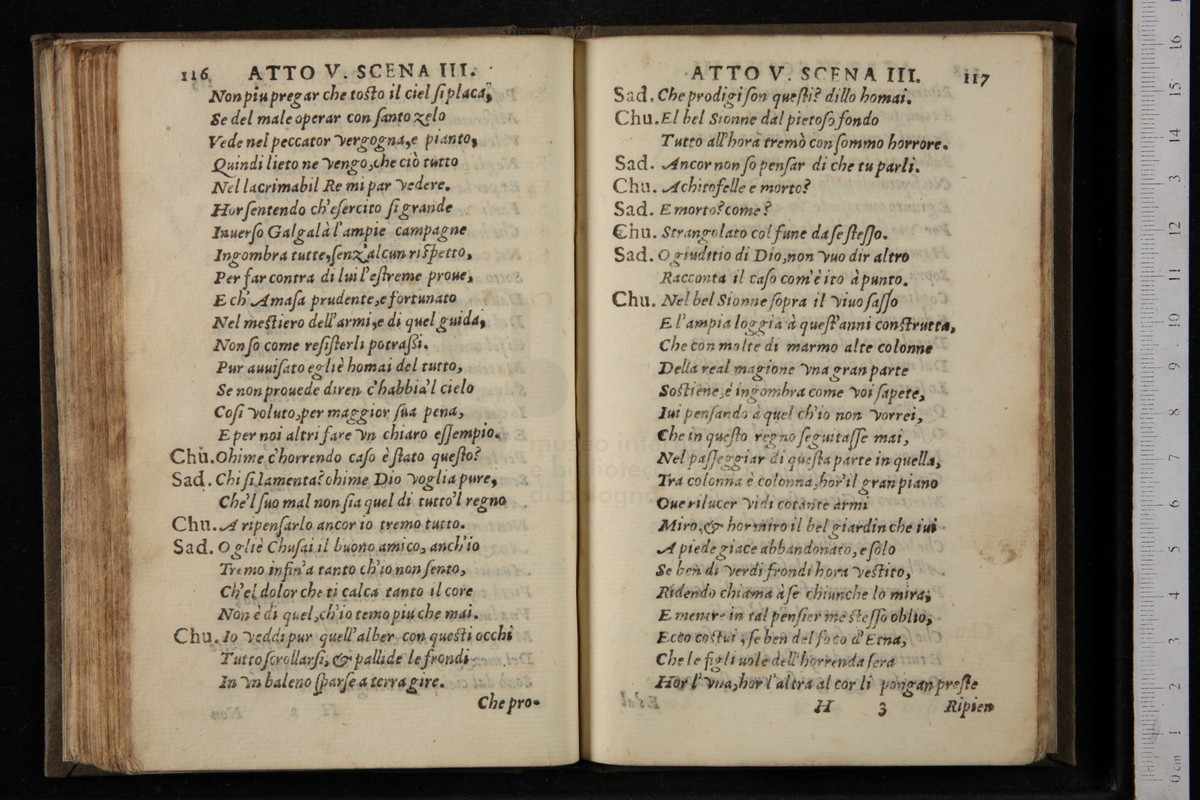 116 ATTO V. SCENA III.
Non piu pregar che tosto il ciel si placa,
Se del male operar con santo zelo
Vede nel peccator vergogna, e pianto,
Quindi lieto ne vengo, che ciò tutto
Nel lacrimabil Re mi par vedere.
Hor sentendo ch'esercito si grande
Inuerso Galgalà l'ampie campagne
Ingombra tutte, senz'alcun rispetto,
Per far contra di lui l'estreme proue,
E ch'Amasa prudente, e fortunato
Nel mestiero dell'armi, e di quel guida,
Non so come resisterli potrassi.
Pur auuisato egliè homai del tutto,
Se non prouede diren c'habbia'l cielo
Cosi voluto, per maggior sua pena,
E per noi altri fare vn chiaro essempio.
Chu. Ohime, c'horrendo caso è stato questo?
Sad. Chi si lamenta? ohime Dio voglia pure,
Che'l suo mal non sia quel di tutto'l regno
Chu. A ripensarlo ancor io tremo tutto.
Sad. O gliè Chusai il buono amico, anch'io
Tremo infin'a tanto ch'io non sento,
Ch'el dolor che ti calca tanto il core
Non è di quel, ch'io temo piu che mai.
Chu. Io veddi pur quell'alber con questi occhi
Tutto scrollarsi, & pallide le frondi
In vn baleno sparse a terra gire.
Che pro-
ATTO V. SCENA III. 117
Sad. Che prodigi son questi? dillo homai.
Chu. El bel Sionne dal pietoso fondo
Tutto all'hora tremò con sommo horrore.
Sad. Ancor non so pensar di che tu parli.
Chu. Achitofelle e morto?
Sad. E morto? come?
Chu. Strangolato col fune da se stesso.
Sad. O giuditio di Dio, non vuo dir altro
Racconta il caso com'è ito à punto.
Chu. Nel bel Sionne sopra il viuo sasso
E l'ampia loggia à quest'anni construtta,
Che con molte di marmo alte colonne
Della real magione vna gran parte
Sostiene, é ingombra come voi sapete,
Iui pensando à quel ch'io non vorrei,
Che in questo regno seguitasse mai,
Nel passeggiar di questa parte in quella,
Tra colonna è colonna, hor'il gran piano
Oue rilucer vidi cotante armi
Miro, & hor miro il bel giardin che iui
A piede giace abbandonato, e solo
Se ben di verdi frondi hora vestito,
Ridendo chiama à se chiunche lo mira;
E mentre in tal pensier me stesso oblio,
Ecco costui, se ben del foco d'Etna,
Che le figliuole dell'horrenda sera
Hor l'vna, hor l'altra al cor li pongan preste
H 3 Ripien